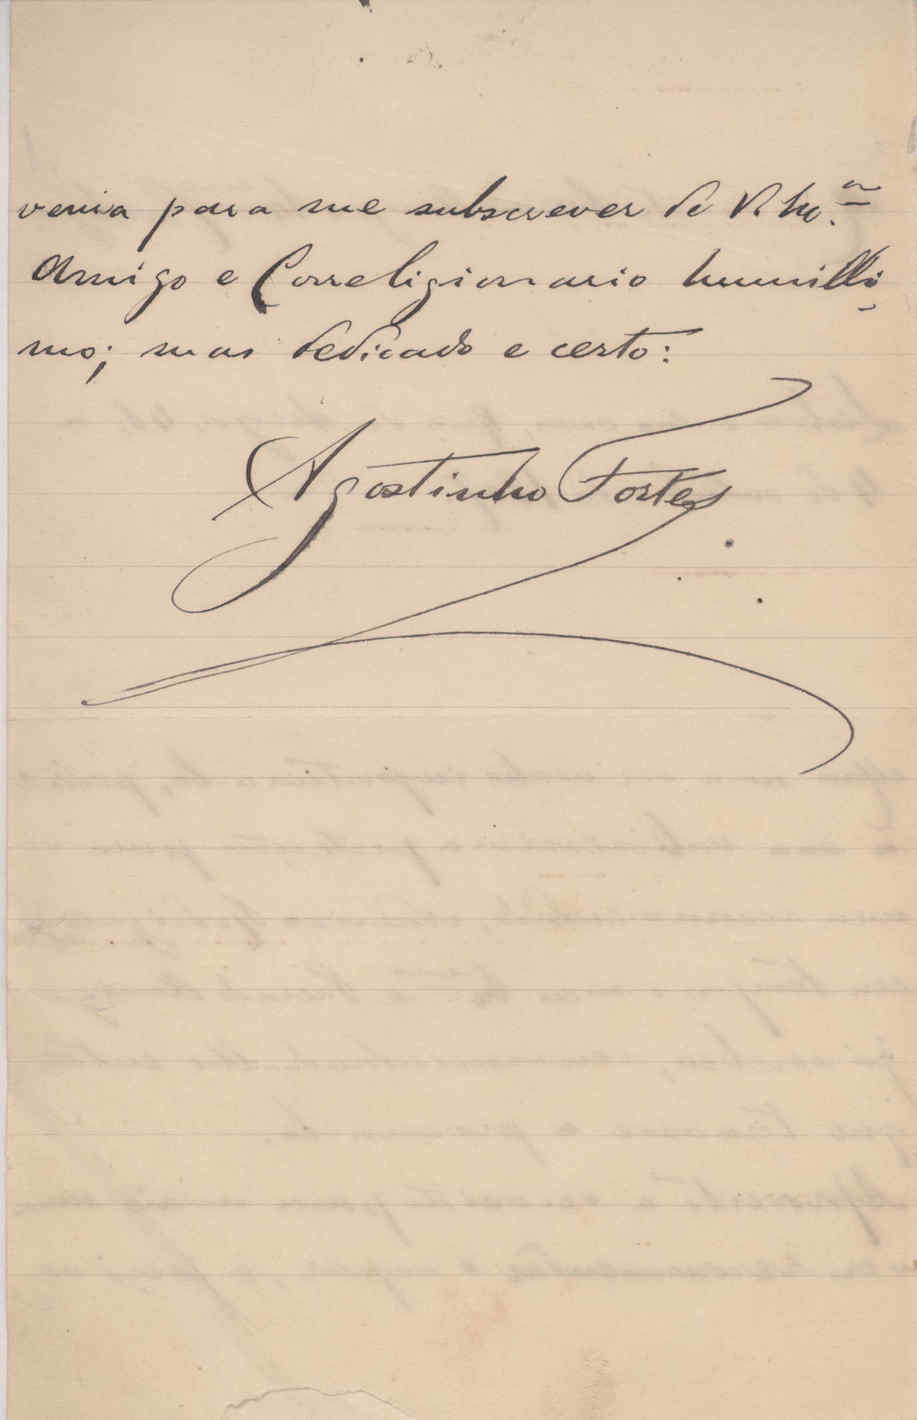 venia para me subscrever de V.
Amigo e Correligionario humilli-
mo; mas dedicado e certo:
Agostinho Fortes